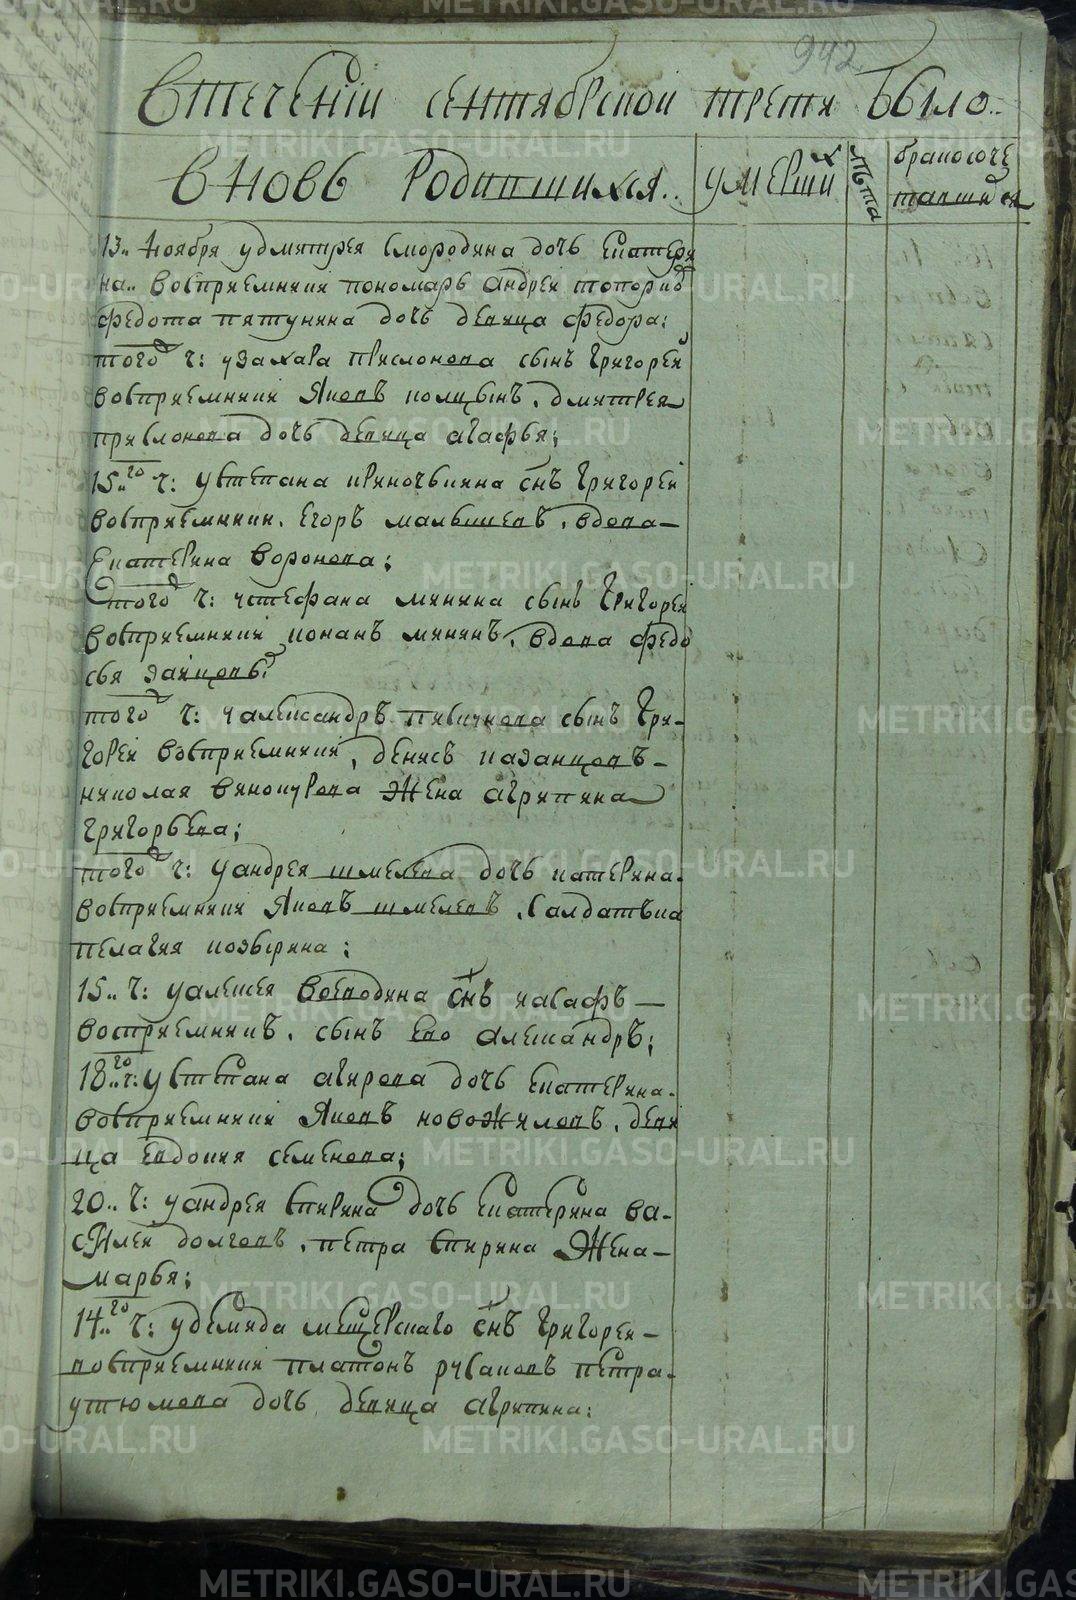 942
Втечении сентябрской трети было..
вновь родившихся..
умерши х
лѣта
бракосоче
тавшихся
13.. ноября удмитрея смородина дочь екатери
на.. восприемники пономарь андреи топорковъ
федота пятунина дочь девица федора:
того ч: узахара прислонова сынъ григореи
восприемники яковъ дмитрея
прислонова дочь девица агафья;
15..го ч: устепана снъ григореи
восприемники. егоръ малышевъ. вдова
екатерина воронова;
того ч: устефана минина сынъ григореи
восприемники кононъ мининъ. вдова федо
сья заицовъ.
того ч: уалександръ сынъ гри-
гореи восприемники, денисъ казанцовъ
николая винокурова жена агрипина
григорьева;
того ч: уандрея шмелева дочь катерина.
восприемники яковъ шмелевъ. салдатъка
пелагия козырина:
15.. ч: уалексея воеводина снъ иасафъ
восприемникъ. сынъ ево александръ;
18..го ч: устепана агирова дочь екатерина.
восприемники яковъ новожиловъ. деви
ца евдокия семенова;
20.. ч: уандрея спирина дочь екатерина ва-
силеи долговъ. петра спирина жена
марья;
14..го ч: удемида мещерскаго снъ григореи
восприемники платонъ русановъ петра.
утюмова дочь девица агрипина:
METRIKI.GASO-URAL.RU